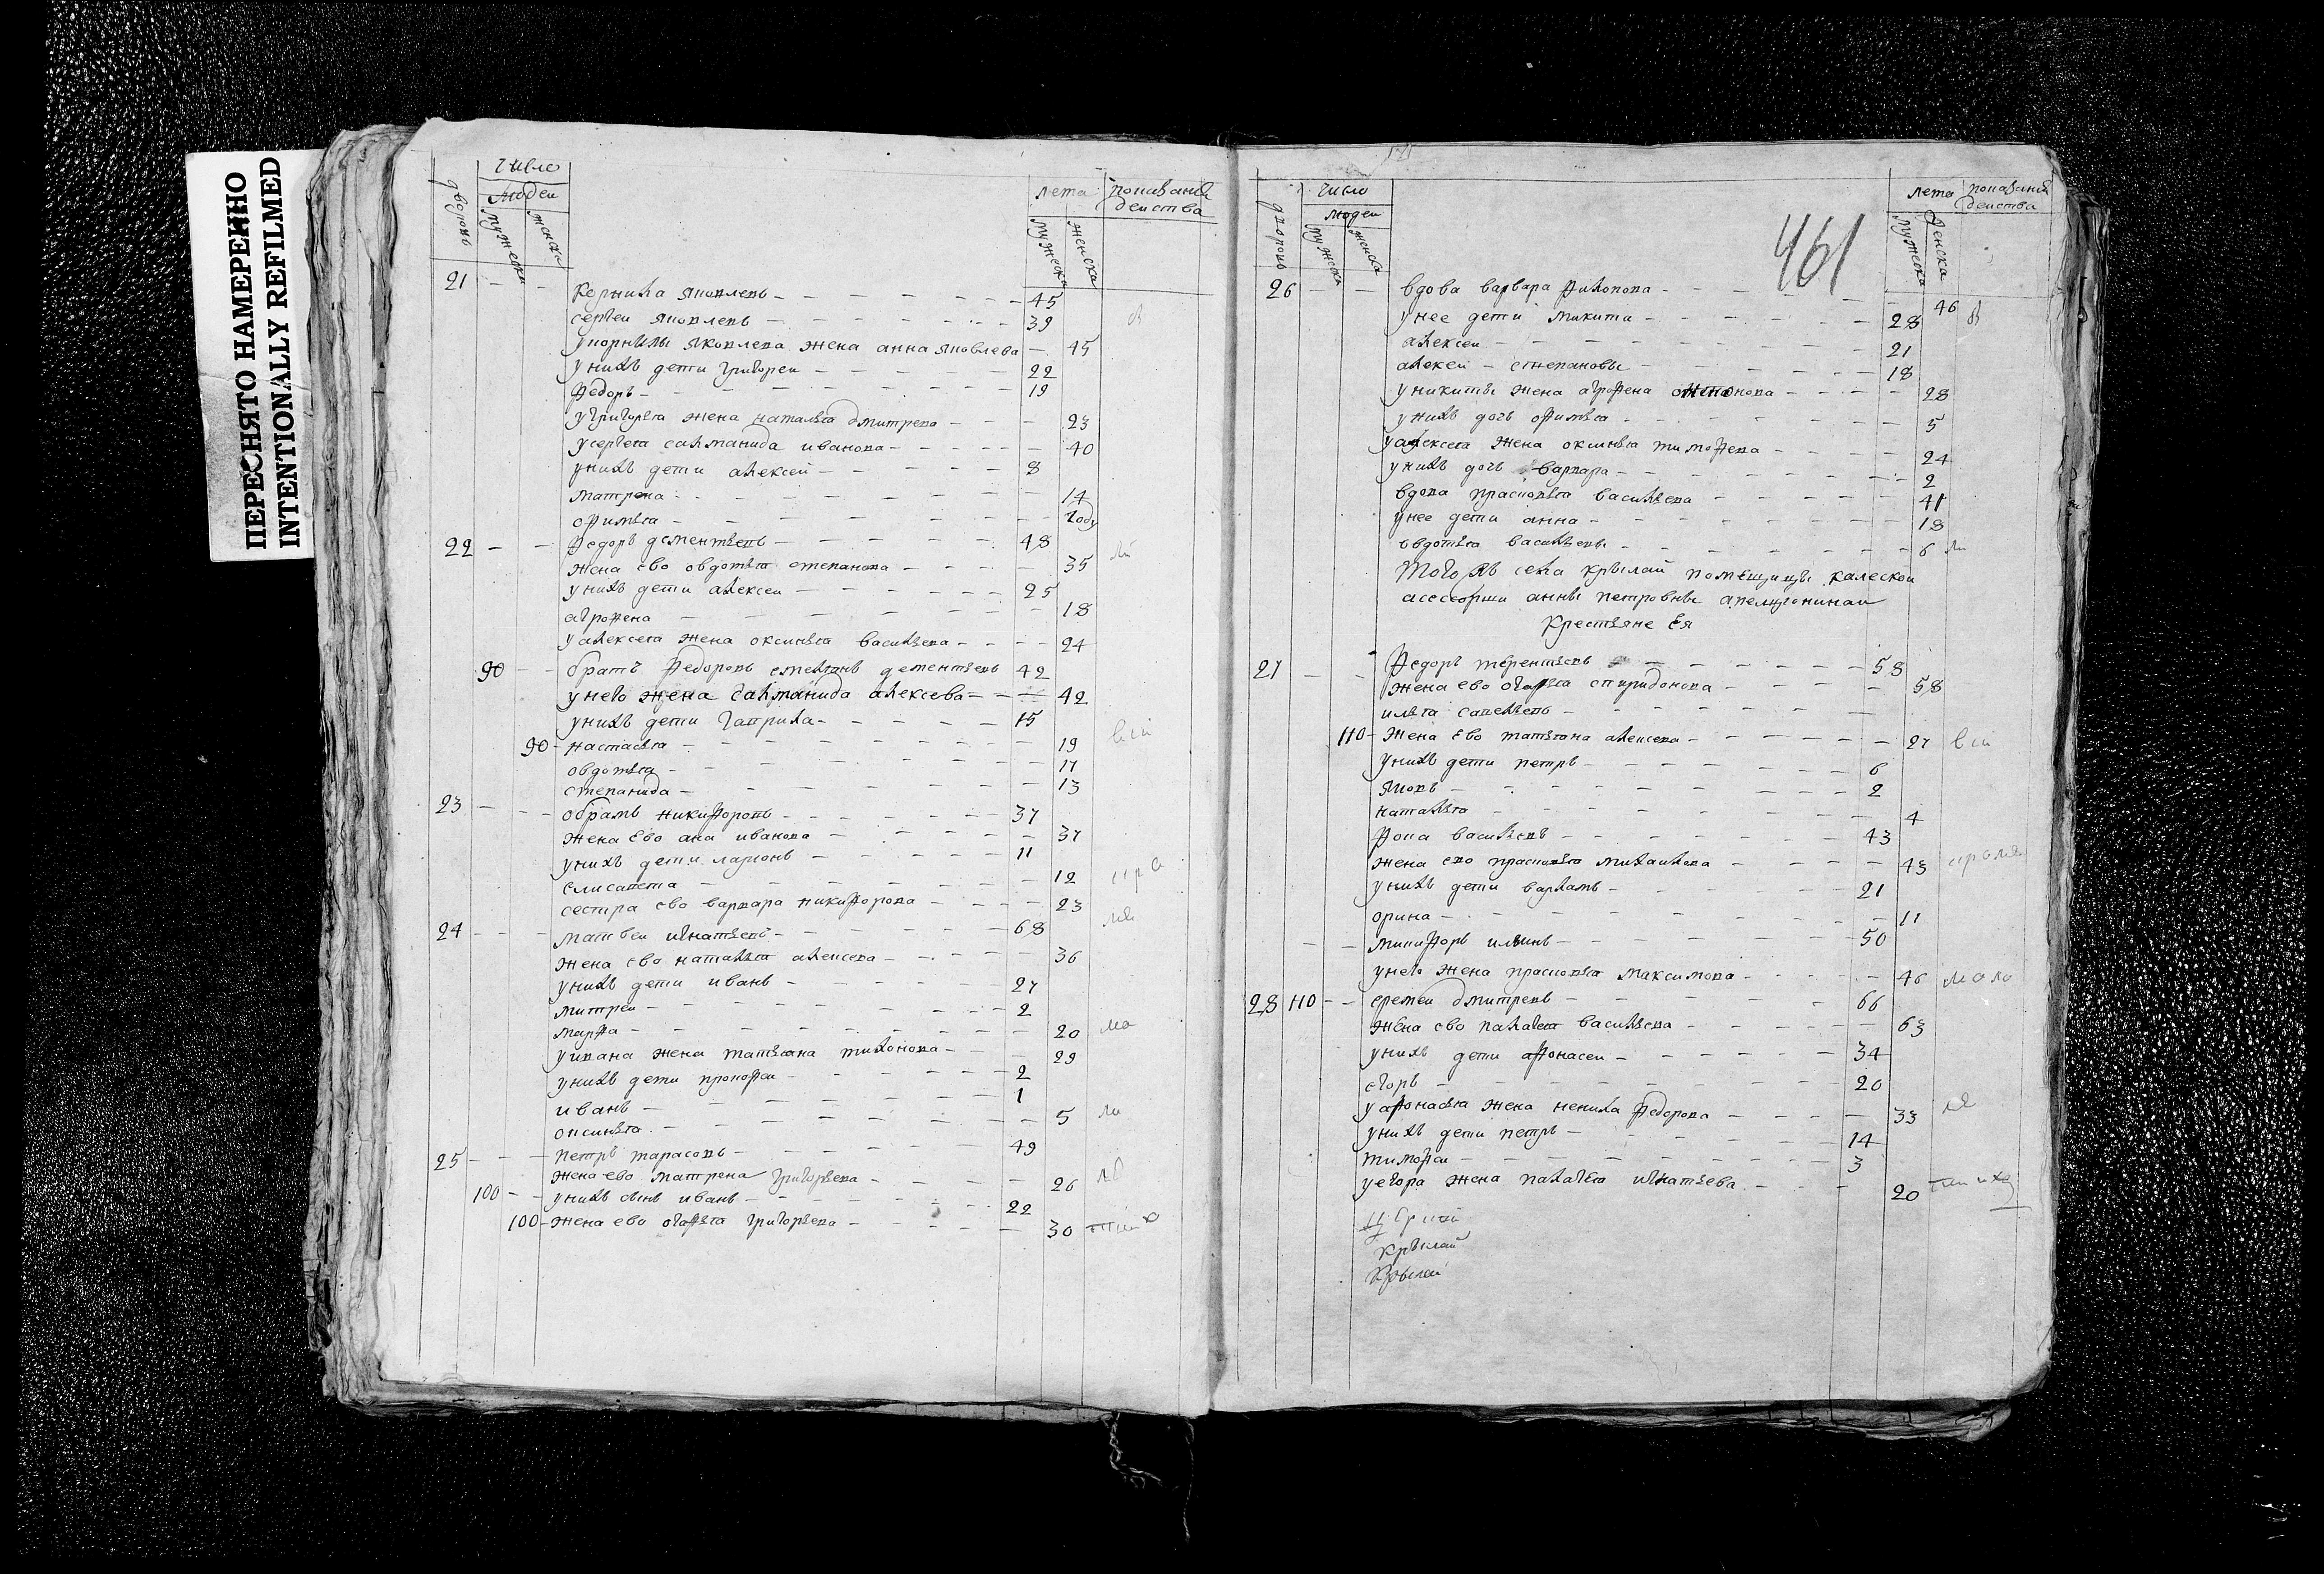 ПЕРЕСНЯТО НАМЕРЕННО
INTENTIONALLY REFILMED
число
людеи
дворовъ
мужеска
женска
лета
мужеска
женска
показания
деиства
21 Корнила яковлевъ 45
сергеи яковлевъ 39
укорнилы яковлева жена анна яковлева 45
унихъ дети григореи 22
федоръ 19
угригорья жена наталья дмитрева 23
усергея саломанида иванова 40
унихъ дети алексеи 8
матрена 14
офимья году
22 федоръ дементьевъ 48
жена ево овдотья степанова 35
унихъ дети алексеи 25
аграфена 18
уалексея жена оксинья васильева 24
90 братъ федоровъ емельянъ дементьевъ 42
унего жена саломанида алексева 42
унихъ дети гаврила 15
90 настасья 19
овдотья 17
степанида 13
23 обрамъ никифоровъ 37
жена ево ана иванова 37
унихъ дети ларионъ 11
елисавета 12
сестра ево варвара никифорова 23
24 матвеи игнатьевъ 68
жена ево наталья алексева 36
унихъ дети иванъ 27
митреи 2
марфа 20
уивана жена татьяна тихонова 29
унихъ дети прокофеи 2
иванъ 1
оксинья 5
25 петръ тарасовъ 49
жена ево матрена григорьева 26
100 унихъ сынъ иванъ 22
100 жена ево огафья григорьева 30
461
число
людеи
дворовъ
мужеска
женска
лета
мужеска
женска
показания
деиства
26 вдова варвара филопова 46
унее дети микита 28
алексеи 21
алексеи степановы 18
уникиты жена аграфена 28
унихъ дочь офимья 5
уалексея жена оксинья тимофева 24
унихъ дочь варвара 2
вдова прасковья васильева 41
унее дети анна 18
овдотья васильевы 6
Того жъ села крылаи помещицы калескои
асесорши анны петровны
Крестьяне Ея
27 федоръ терентьевъ 58
жена ево огафья спиридонова 58
илья савельевъ
110 жена ево татьяна алексева 27
унихъ дети петръ 6
яковъ 2
наталья 4
фока васильевъ 43
жена ево прасковья михаилова 43
унихъ дети варламъ 21
орина 11
никифоръ ильинъ 50
унего жена прасковья максимова 46
28 110 еремеи дмитревъ 66
жена ево палагея васильева 63
унихъ дети афонасеи 34
егоръ 20
уафонасья жена ненила федорова 33
унихъ дети петръ 14
тимофеи 3
уегора жена палагея игнатьева 20
крылаи
Крылаи